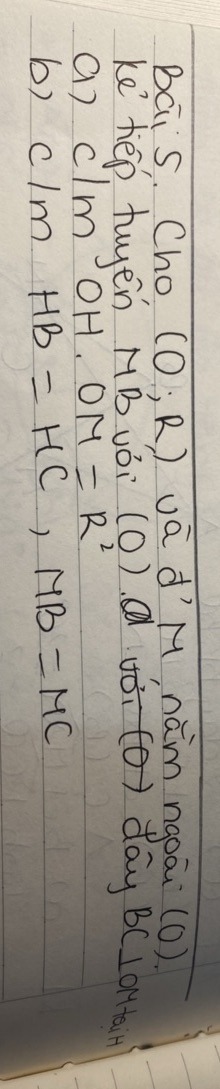 Bài 5. Cho (O; R) và đ' M nằm ngoài (O).
kẻ tiếp tuyến MB với (O). với (O) dây BC ⊥ OM tại H
a) c/m OH. OM = R²
b) c/m HB = HC, MB = MC